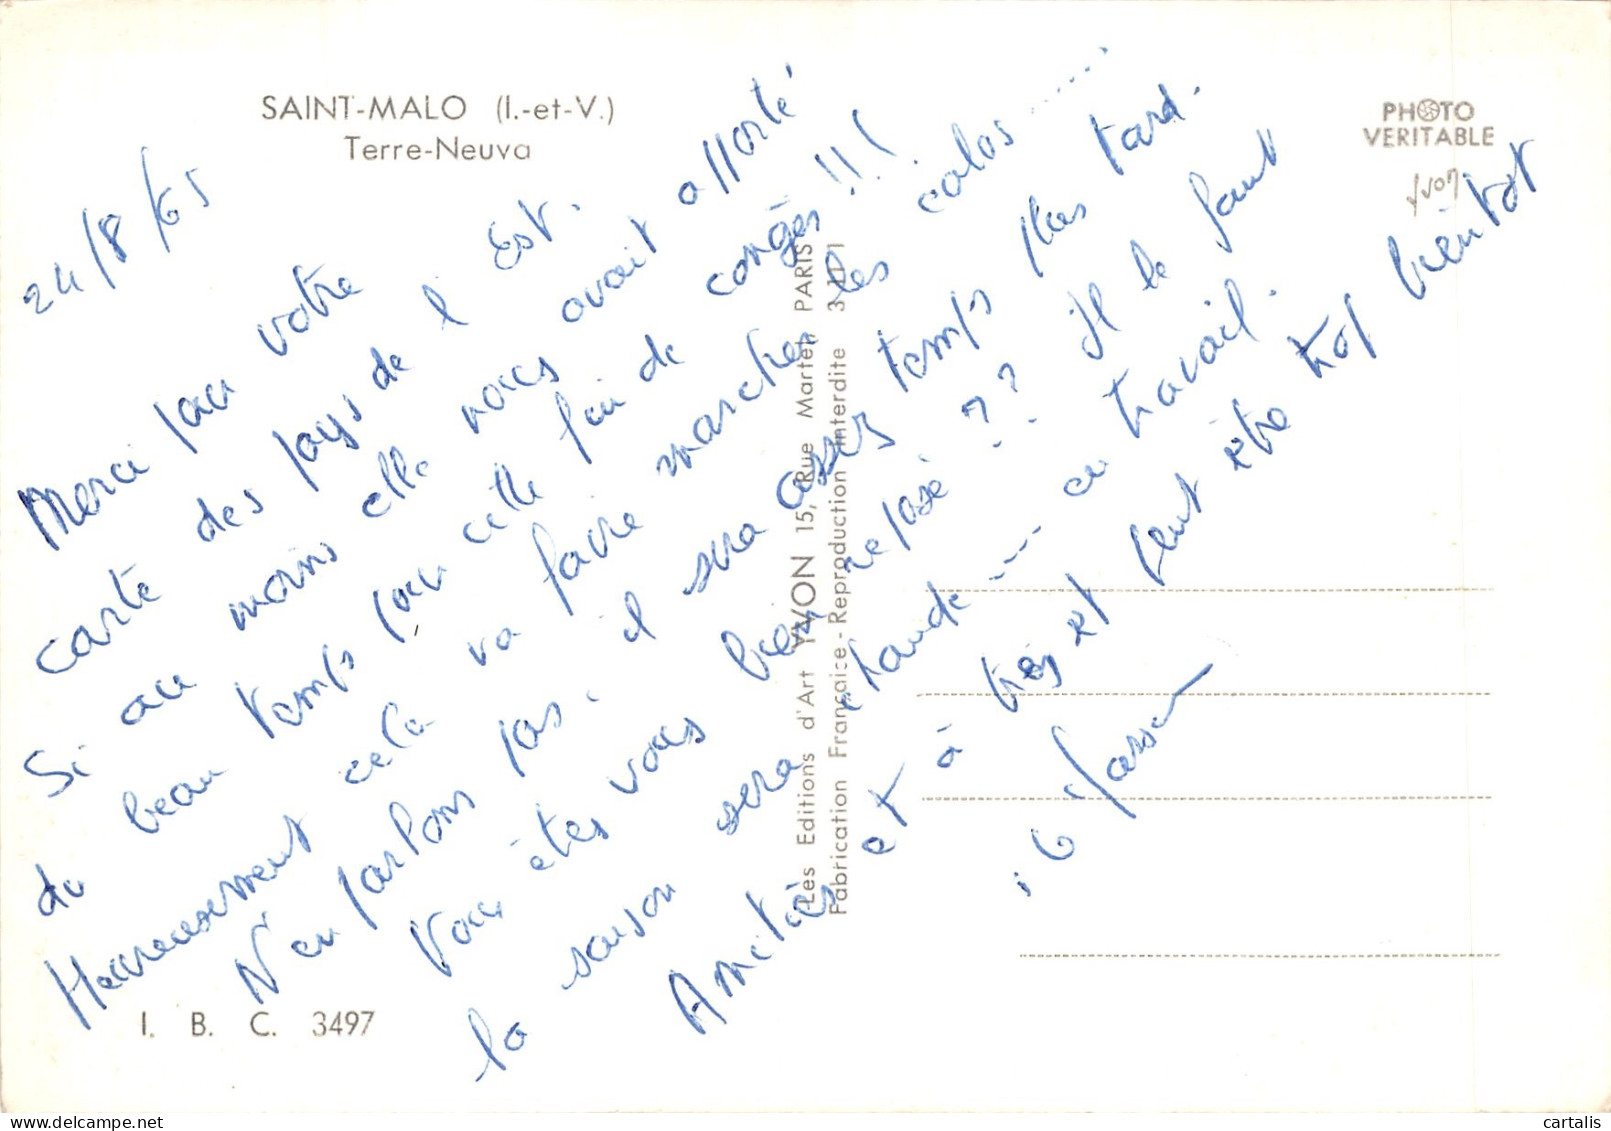 SAINT-MALO (I.-et-V.)
Terre-Neuva
PHOTO
VERITABLE
Yvon
24/8/65
Merci pour votre
carte des pays de l'Est.
Si au moins elle nous avait apporté
du beau temps pour cette fin de congés!!!
Heureusement cela va faire marcher les calos......
N'en parlons pas, il sera assez temps plus tard.
Vous êtes vous bien reposé ?? Il le faut
la saison sera chaude .... au travail.
Amitiés et à très et peut être trop bientot
Les Editions d'Art YVON 15, Rue Martel, PARIS
Fabrication Française - Reproduction Interdite
I. B. C. 3497